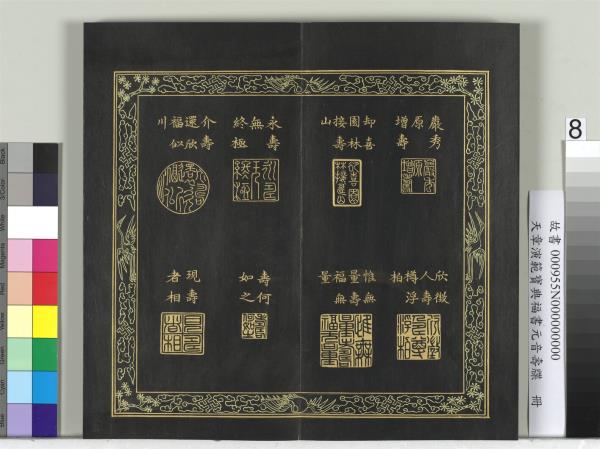 巖秀
原
增壽
却喜
園林
接壽
山
永壽
無
終極
介壽
還欣
福似
川
欣徵
人壽
樽浮
柏
惟無
量壽
福無
量
壽何
如之
現壽
者相
故書 000955N000000000
天章演範寶典福書元音壽牒 冊
8
Black
3/Color
White
Magenta
Red
Yellow
Green
Cyan
Blue